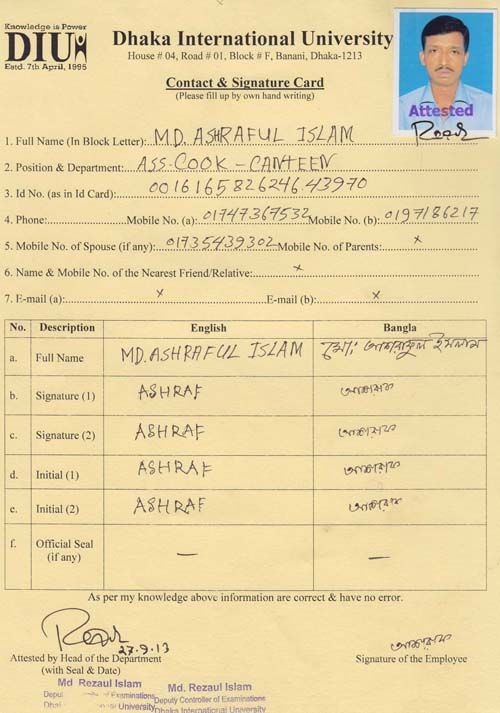 Knowledge is Power
DIU
Estd. 7th April, 1995
Dhaka International University
House # 04, Road # 01, Block # F, Banani, Dhaka-1213
Contact & Signature Card
(Please fill up by own hand writing)
Attested
1. Full Name (In Block Letter): MD. ASHRAFUL ISLAM
2. Position & Department: ASS-COOK-CANTEEN
3. Id No. (as in Id Card): 0016165826246.43970
4. Phone: Mobile No. (a): 01747367532 Mobile No. (b): 0197186217
5. Mobile No. of Spouse (if any): 01735439302 Mobile No. of Parents: x
6. Name & Mobile No. of the Nearest Friend/Relative: x
7. E-mail (a): x E-mail (b): x
No. Description English Bangla
a. Full Name MD. ASHRAFUL ISLAM মো: আশরাফুল ইসলাম
b. Signature (1) ASHRAF আশরাফ
c. Signature (2) ASHRAF আশরাফ
d. Initial (1) ASHRAF আশরাফ
e. Initial (2) ASHRAF আশরাফ
f. Official Seal (if any) — —
As per my knowledge above information are correct & have no error.
27.9.13
আশরাফ
Attested by Head of the Department
(with Seal & Date)
Signature of the Employee
Md Rezaul Islam
Md. Rezaul Islam
Examinations
Deputy Controller of Examinations
University
Dhaka International University